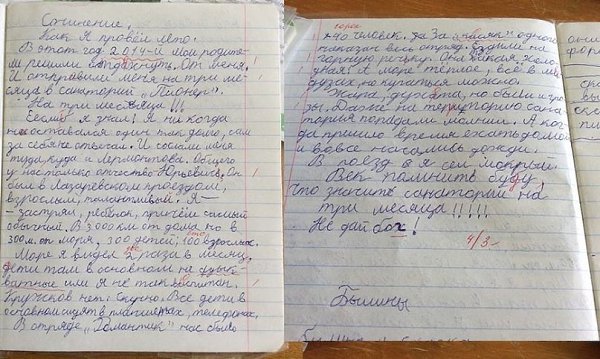 Сочинение.
Как я провёл лето.
В этот год 2014-й мои родите-
ли решили отдахнуть. От меня.
И отправили меня на три ме-
сяца в санаторий "Пионер".
На три месяца!!!
Если я знал! Я ни когда
не оставался один так долго, сам
за себя не отвечал. И сослали меня
туда, куда и Лермонтова. Общего
у нас только отчество Юрьевич. Он
был в Лазаревском проездом,
взрослым, талантливый. Я
- застрял, ребёнок, причём самый
обычный. В 3000 км от дома но в
300 м. от моря, 300 детей, 100 взрослых.
сто
Море я видел 2 раза в месяц.
два
Дети там в основном не
или я не так воспитан.
Кружков нет. Скучно. Все дети в
основном сидят в планшетах, телефонах.
В отряде "Романтик" нас было
сорок
40 человек. Да за "косяк" одного
наказан весь отряд. Ездили на
горную речьку. Она такая холо-
дная! А море тёплое, всё в ме-
дузах, но купаться можно.
Жара, духота, но были и гро-
зы. Даже на територию сана-
тория попадали молнии. А ко-
гда пришло время ехать домой
и вовсе начались дожди.
В поезд я сел мокрый.
Век помнить буду
что значить санаторий на
три месяца!!!!!
Не дай бох!
4/3-
Былины